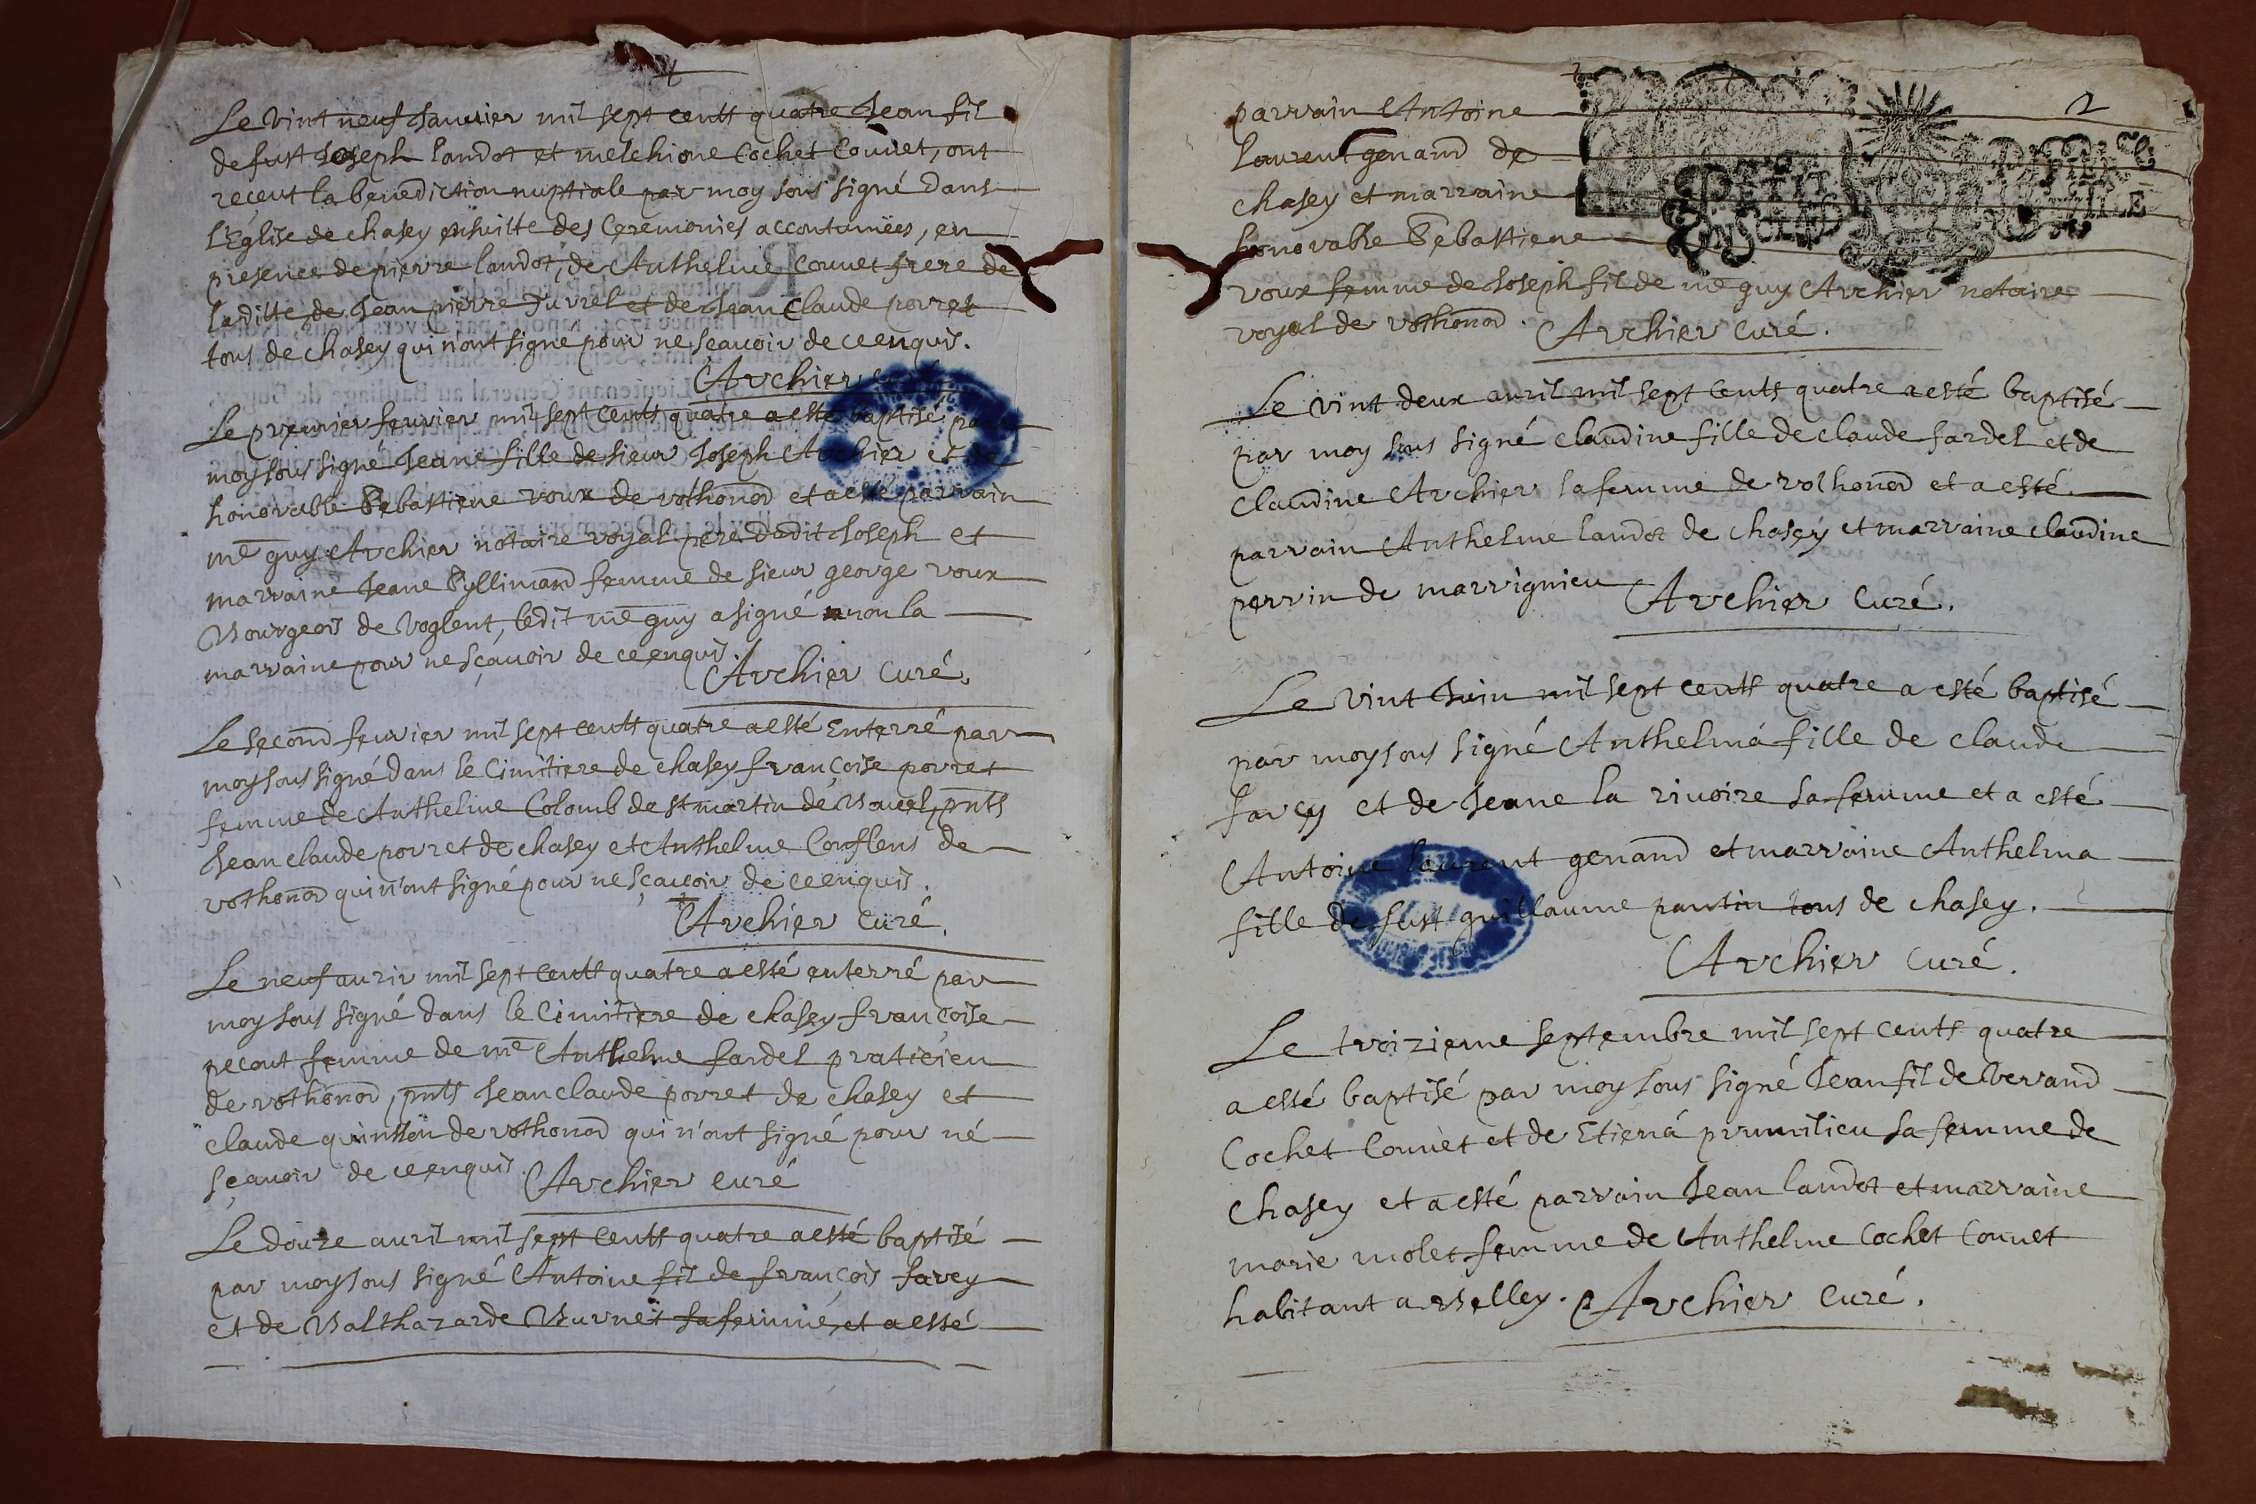 Le vint neuf Janvier mil sept centt quatre Jean fil
de fust Joseph landot et melchione Cochet Couvet, ont
reçeut la benediction nuptiale par moy sous signé dans
l'Eglise de chasey ensuitte des Ceremonies accoutumées, en
presence de pierre landot, de Anthelme Couvet frere de
laditte, de Jean pierre Juvrel et de Jean Claude porret
tous de chasey qui n'ont signé pour ne sçavoir de ce enquis.
Archier
Le premier fevrier mil sept cents quatre a esté baptisé par
moy sous signé Jeane fille de sieur Joseph Archier et de
honorable Sebastiene roux de rothonod et a esté parrain
me guy Archier notaire royal pere dudit Joseph et
marraine Jeane Syllimand femme de sieur george roux
Bourgeois de Voglent, ledit me guy a signé non la
marraine pour ne sçavoir de ce enquis.
Archier Curé.
Le second fevrier mil sept centt quatre a esté Enterré par
moy sous signé dans le Cimitiere de chasey françoise porret
femme de Anthelme Colomb de st martin de Bavel, pnts
Jean claude porret de chasey et Anthelme Conflens de
rothonod qui n'ont signé pour ne sçavoir de ce enquis.
Archier Curé.
Le neuf avrir mil sept centt quatre a esté enterré par
moy sous signé dans le Cimitiere de chasey françoise
pecout femme de me Anthelme fardel praticien
de rothonod, pnts Jean claude porret de chasey et
claude quinson de rothonod qui n'ont signé pour ne
sçavoir de ce enquis. Archier Curé
Le douze avril mil sept centt quatre a esté baptisé
par moy sous signé Antoine fil de françois farcy
et de Balthazarde Burnet sa femme, et a esté
2
parrain Antoine
laurent genand de
chasey et marraine
honorable Sebastiene
PETIT
roux femme de Joseph fil de me guy Archier notaire
royal de rothonod. Archier Curé.
Le vint deux avril mil sept Cents quatre a esté baptisé
par moy sous signé claudine fille de claude fardel et de
Claudine Archier sa femme de rothonod et a esté
parrain Anthelme landot de chasey et marraine claudine
perrin de marrignieu Archier Curé.
Le vint Juin mil sept centt quatre a esté baptisé
par moy sous signé Anthelma fille de claude
farcy et de Jeane la rivoire sa femme et a esté
Antoine laurent genand et marraine Anthelma
fille de fust guillaume pantin tous de chasey.
Archier Curé.
Le troizieme septembre mil sept cents quatre
a esté baptisé par moy sous signé Jean fil de Verand
Cochet Couvet et de Etiena prumilieu sa femme de
chasey et a esté parrain Jean landot et marraine
marie molet femme de Anthelme Cochet Couvet
habitant a Belley. Archier Curé.